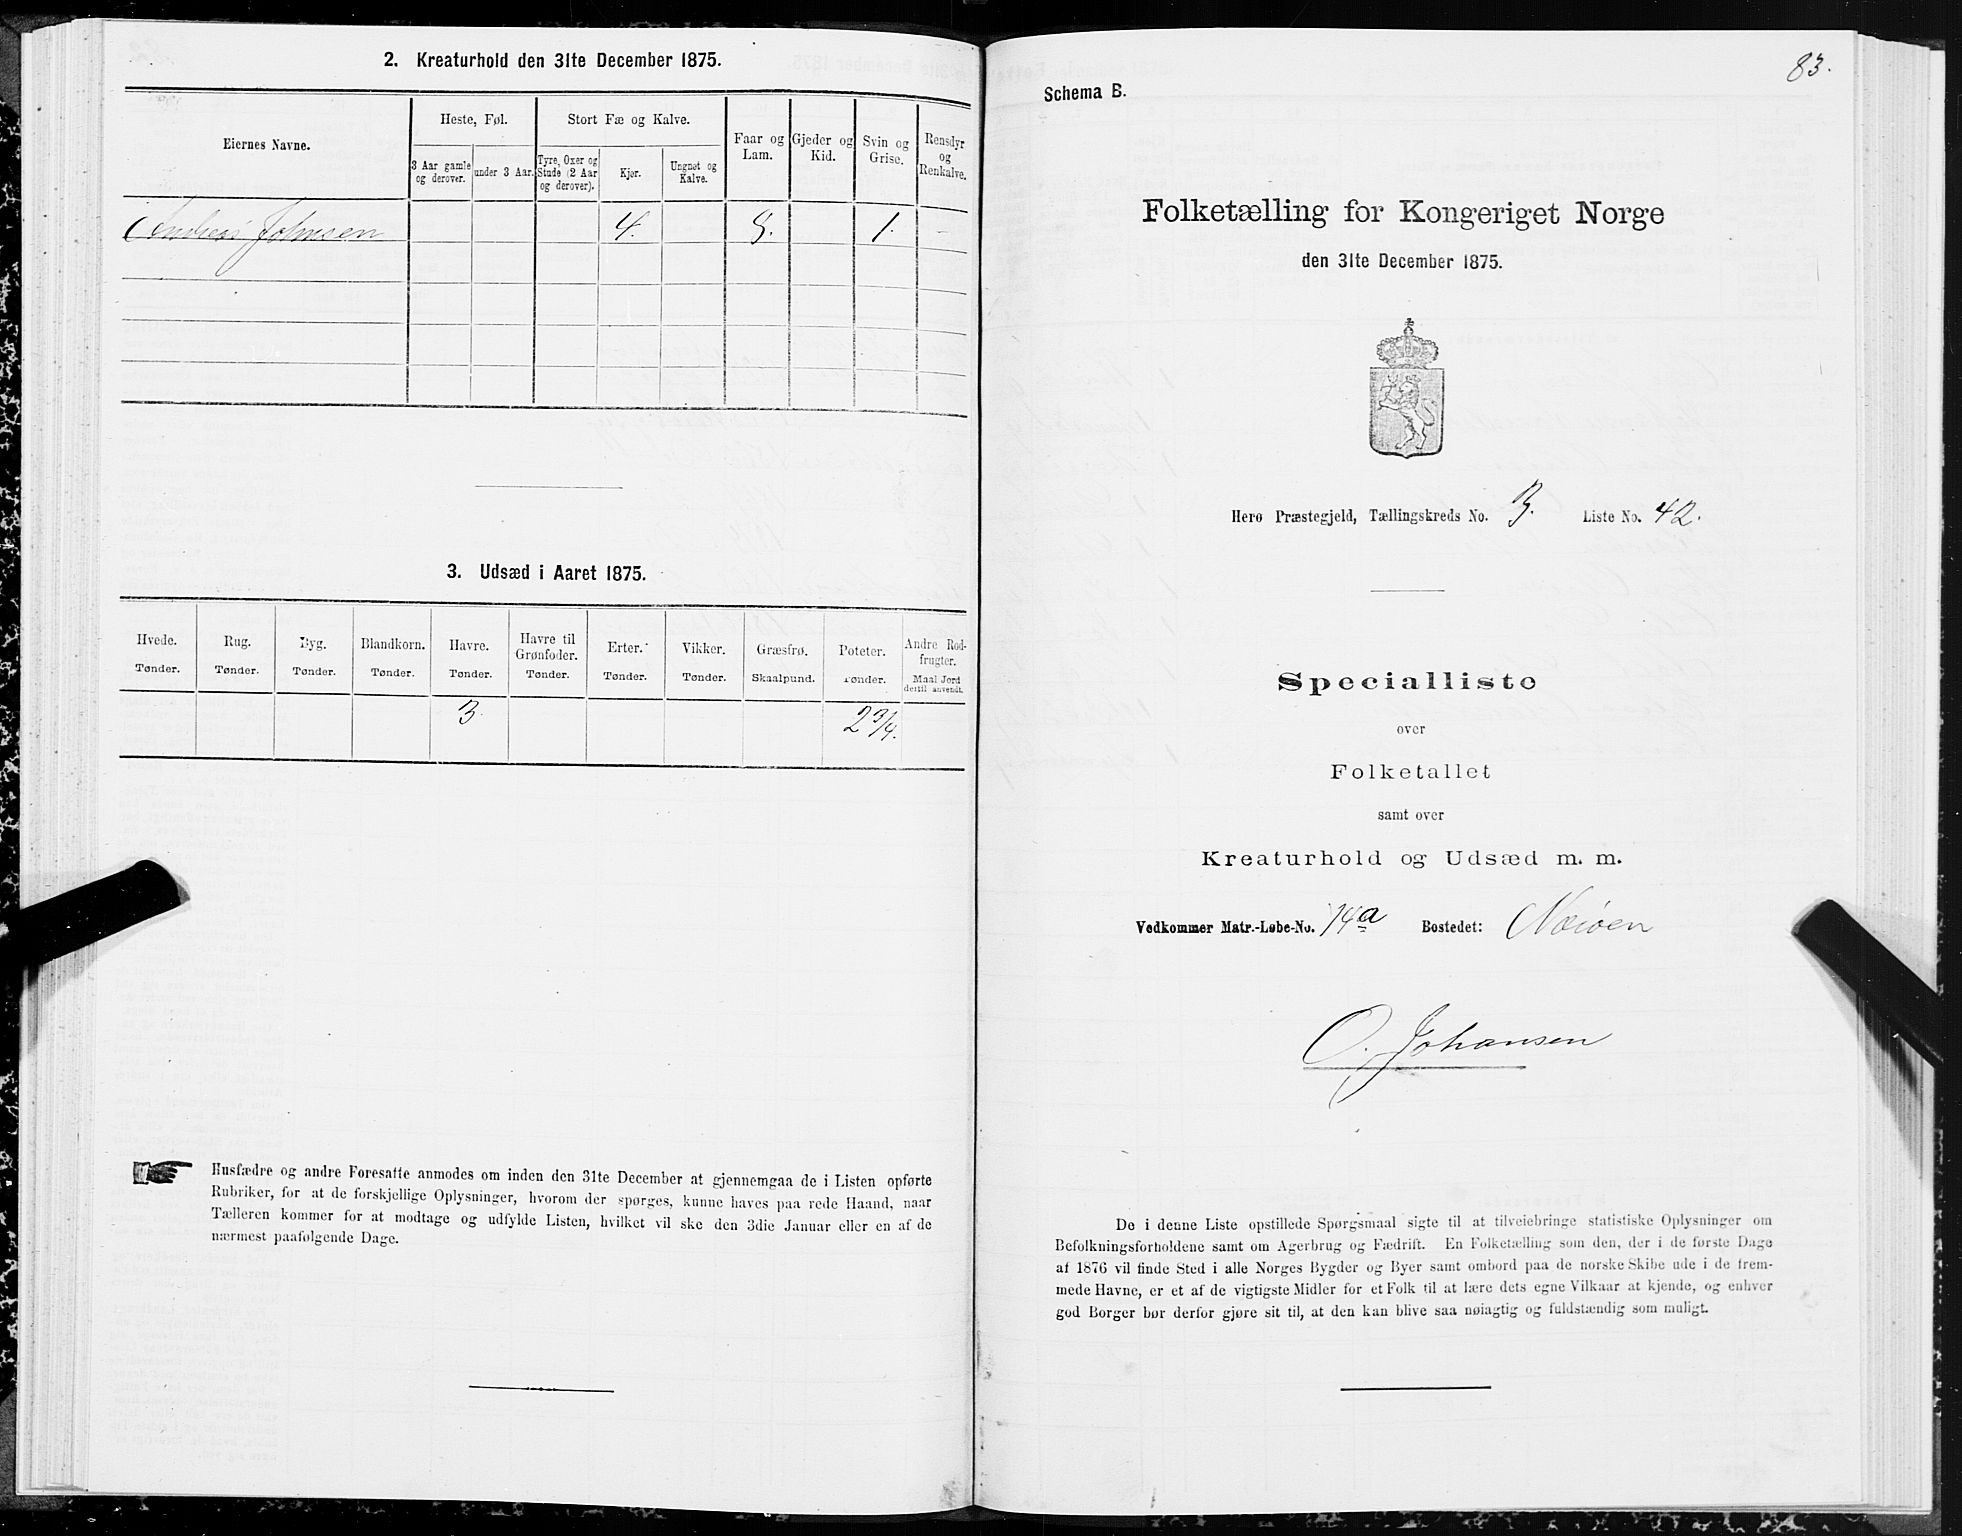 2. Kreaturhold den 31te December 1875.
Eiernes Navne.
Heste, Føl.
Stort Fæ og Kalve.
Faar og Lam.
Gjeder og Kid.
Svin og Grise.
Rensdyr og Renkalve.
3 Aar gamle og derover.
under 3 Aar.
Tyre, Oxer og Stude (2 Aar og derover).
Kjør.
Ungnøt og Kalve.
Andreas Johnsen 4. 8. 1. -
3. Udsæd i Aaret 1875.
Hvede. Rug. Byg. Blandkorn. Havre. Havre til Grønfoder. Erter. Vikker. Græsfrø. Poteter. Andre Rodfrugter.
Tønder. Tønder. Tønder. Tønder. Tønder. Tønder. Tønder. Tønder. Skaalpund. Tønder. Maal Jord dertil anvendt.
3. 2 3/4.
Husfædre og andre Foresatte anmodes om inden den 31te December at gjennemgaa de i Listen opførte
Rubriker, for at de forskjellige Oplysninger, hvorom der spørges, kunne haves paa rede Haand, naar
Tælleren kommer for at modtage og udfylde Listen, hvilket vil ske den 3die Januar eller en af de
nærmest paafølgende Dage.
83.
Schema B.
Folketælling for Kongeriget Norge
den 31te December 1875.
Herø Præstegjeld, Tællingskreds No. 3. Liste No. 42.
Specialliste
over
Folketallet
samt over
Kreaturhold og Udsæd m. m.
Vedkommer Matr.-Løbe-No. 74a Bostedet: Nærøen
O. Johansen
De i denne Liste opstillede Spørgsmaal sigte til at tilveiebringe statistiske Oplysninger om
Befolkningsforholdene samt om Agerbrug og Fædrift. En Folketælling som den, der i de første Dage
af 1876 vil finde Sted i alle Norges Bygder og Byer samt ombord paa de norske Skibe ude i de frem-
mede Havne, er et af de vigtigste Midler for et Folk til at lære dets egne Vilkaar at kjende, og enhver
god Borger bør derfor gjøre sit til, at den kan blive saa nøiagtig og fuldstændig som muligt.